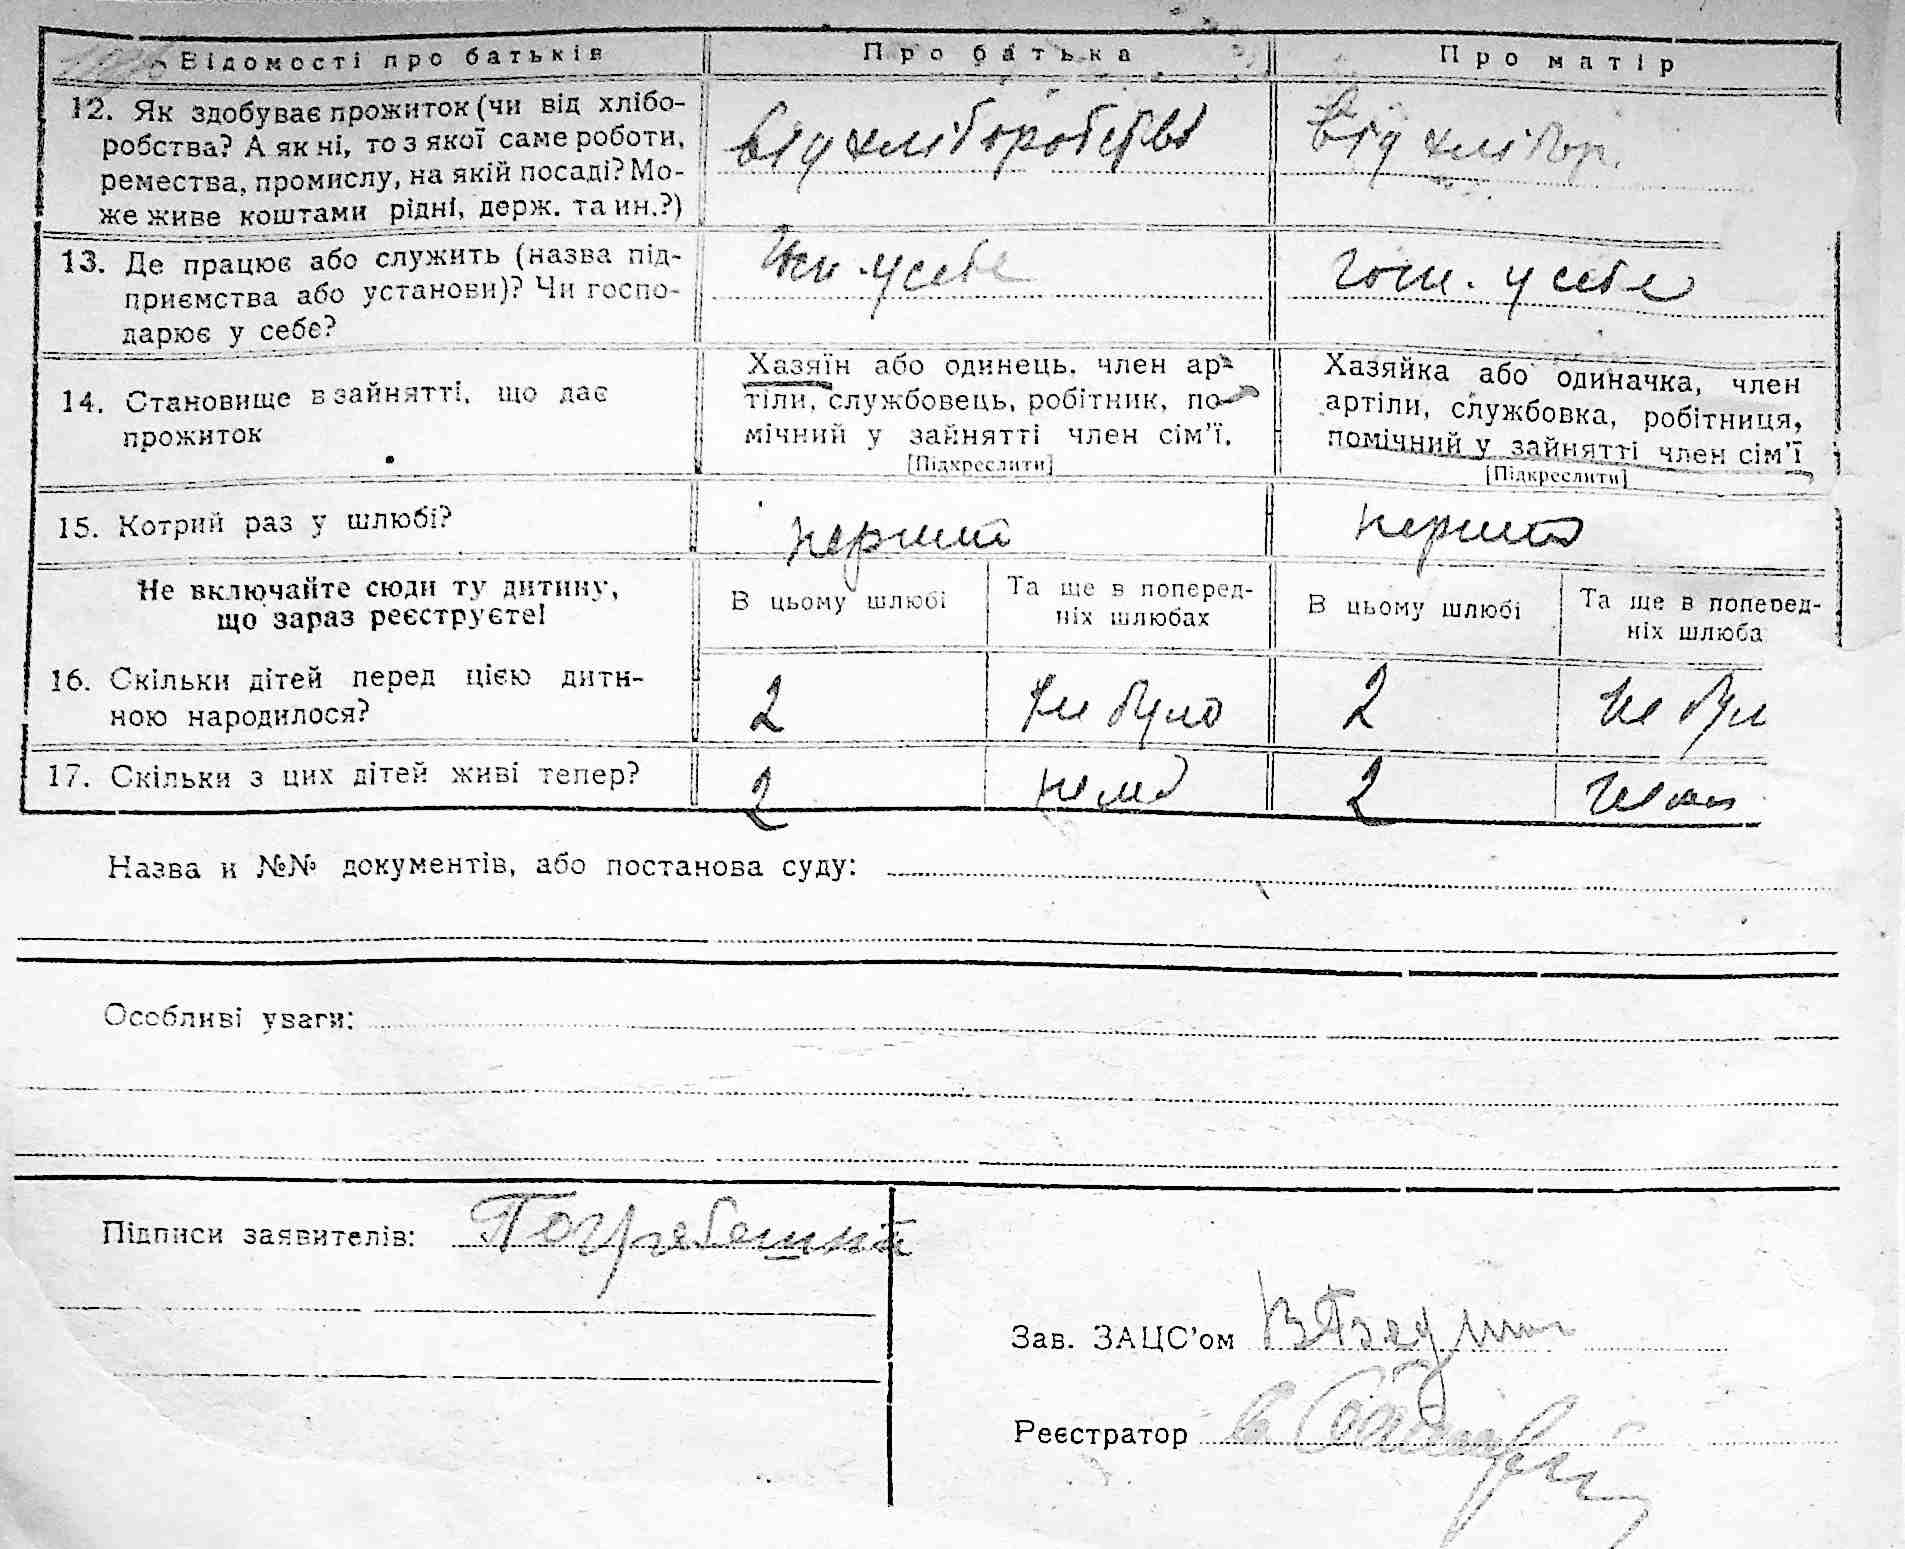 Відомості про батьків
Про батька
Про матір
12. Як здобуває прожиток (чи від хлібо-
робства? А як ні, то з якої саме роботи,
ремества, промислу, на якій посаді? Мо-
же живе коштами рідні, держ. та ин.?)
від хліборобства
від хлібор.
13. Де працює або служить (назва під-
приємства або установи)? Чи госпо-
дарює у себе?
у себе
госп. у себе
14. Становище в зайнятті, що дає
прожиток
Хазяїн або одинець, член ар-
тіли, службовець, робітник, по-
мічний у зайнятті член сім'ї.
[Підкреслити]
Хазяйка або одиначка, член
артіли, службовка, робітниця,
помічний у зайнятті член сім'ї
[Підкреслити]
15. Котрий раз у шлюбі?
перший
перший
Не включайте сюди ту дитину,
що зараз реєструєте!
В цьому шлюбі
Та ще в поперед-
ніх шлюбах
В цьому шлюбі
Та ще в поперед-
ніх шлюба
16. Скільки дітей перед цією дити-
ною народилося?
2
не було
2
не бул
17. Скільки з цих дітей живі тепер?
2
нема
2
нема
Назва й №№ документів, або постанова суду:
Особливі уваги:
Підписи заявителів: Погребешний
Зав. ЗАЦС'ом
Реєстратор